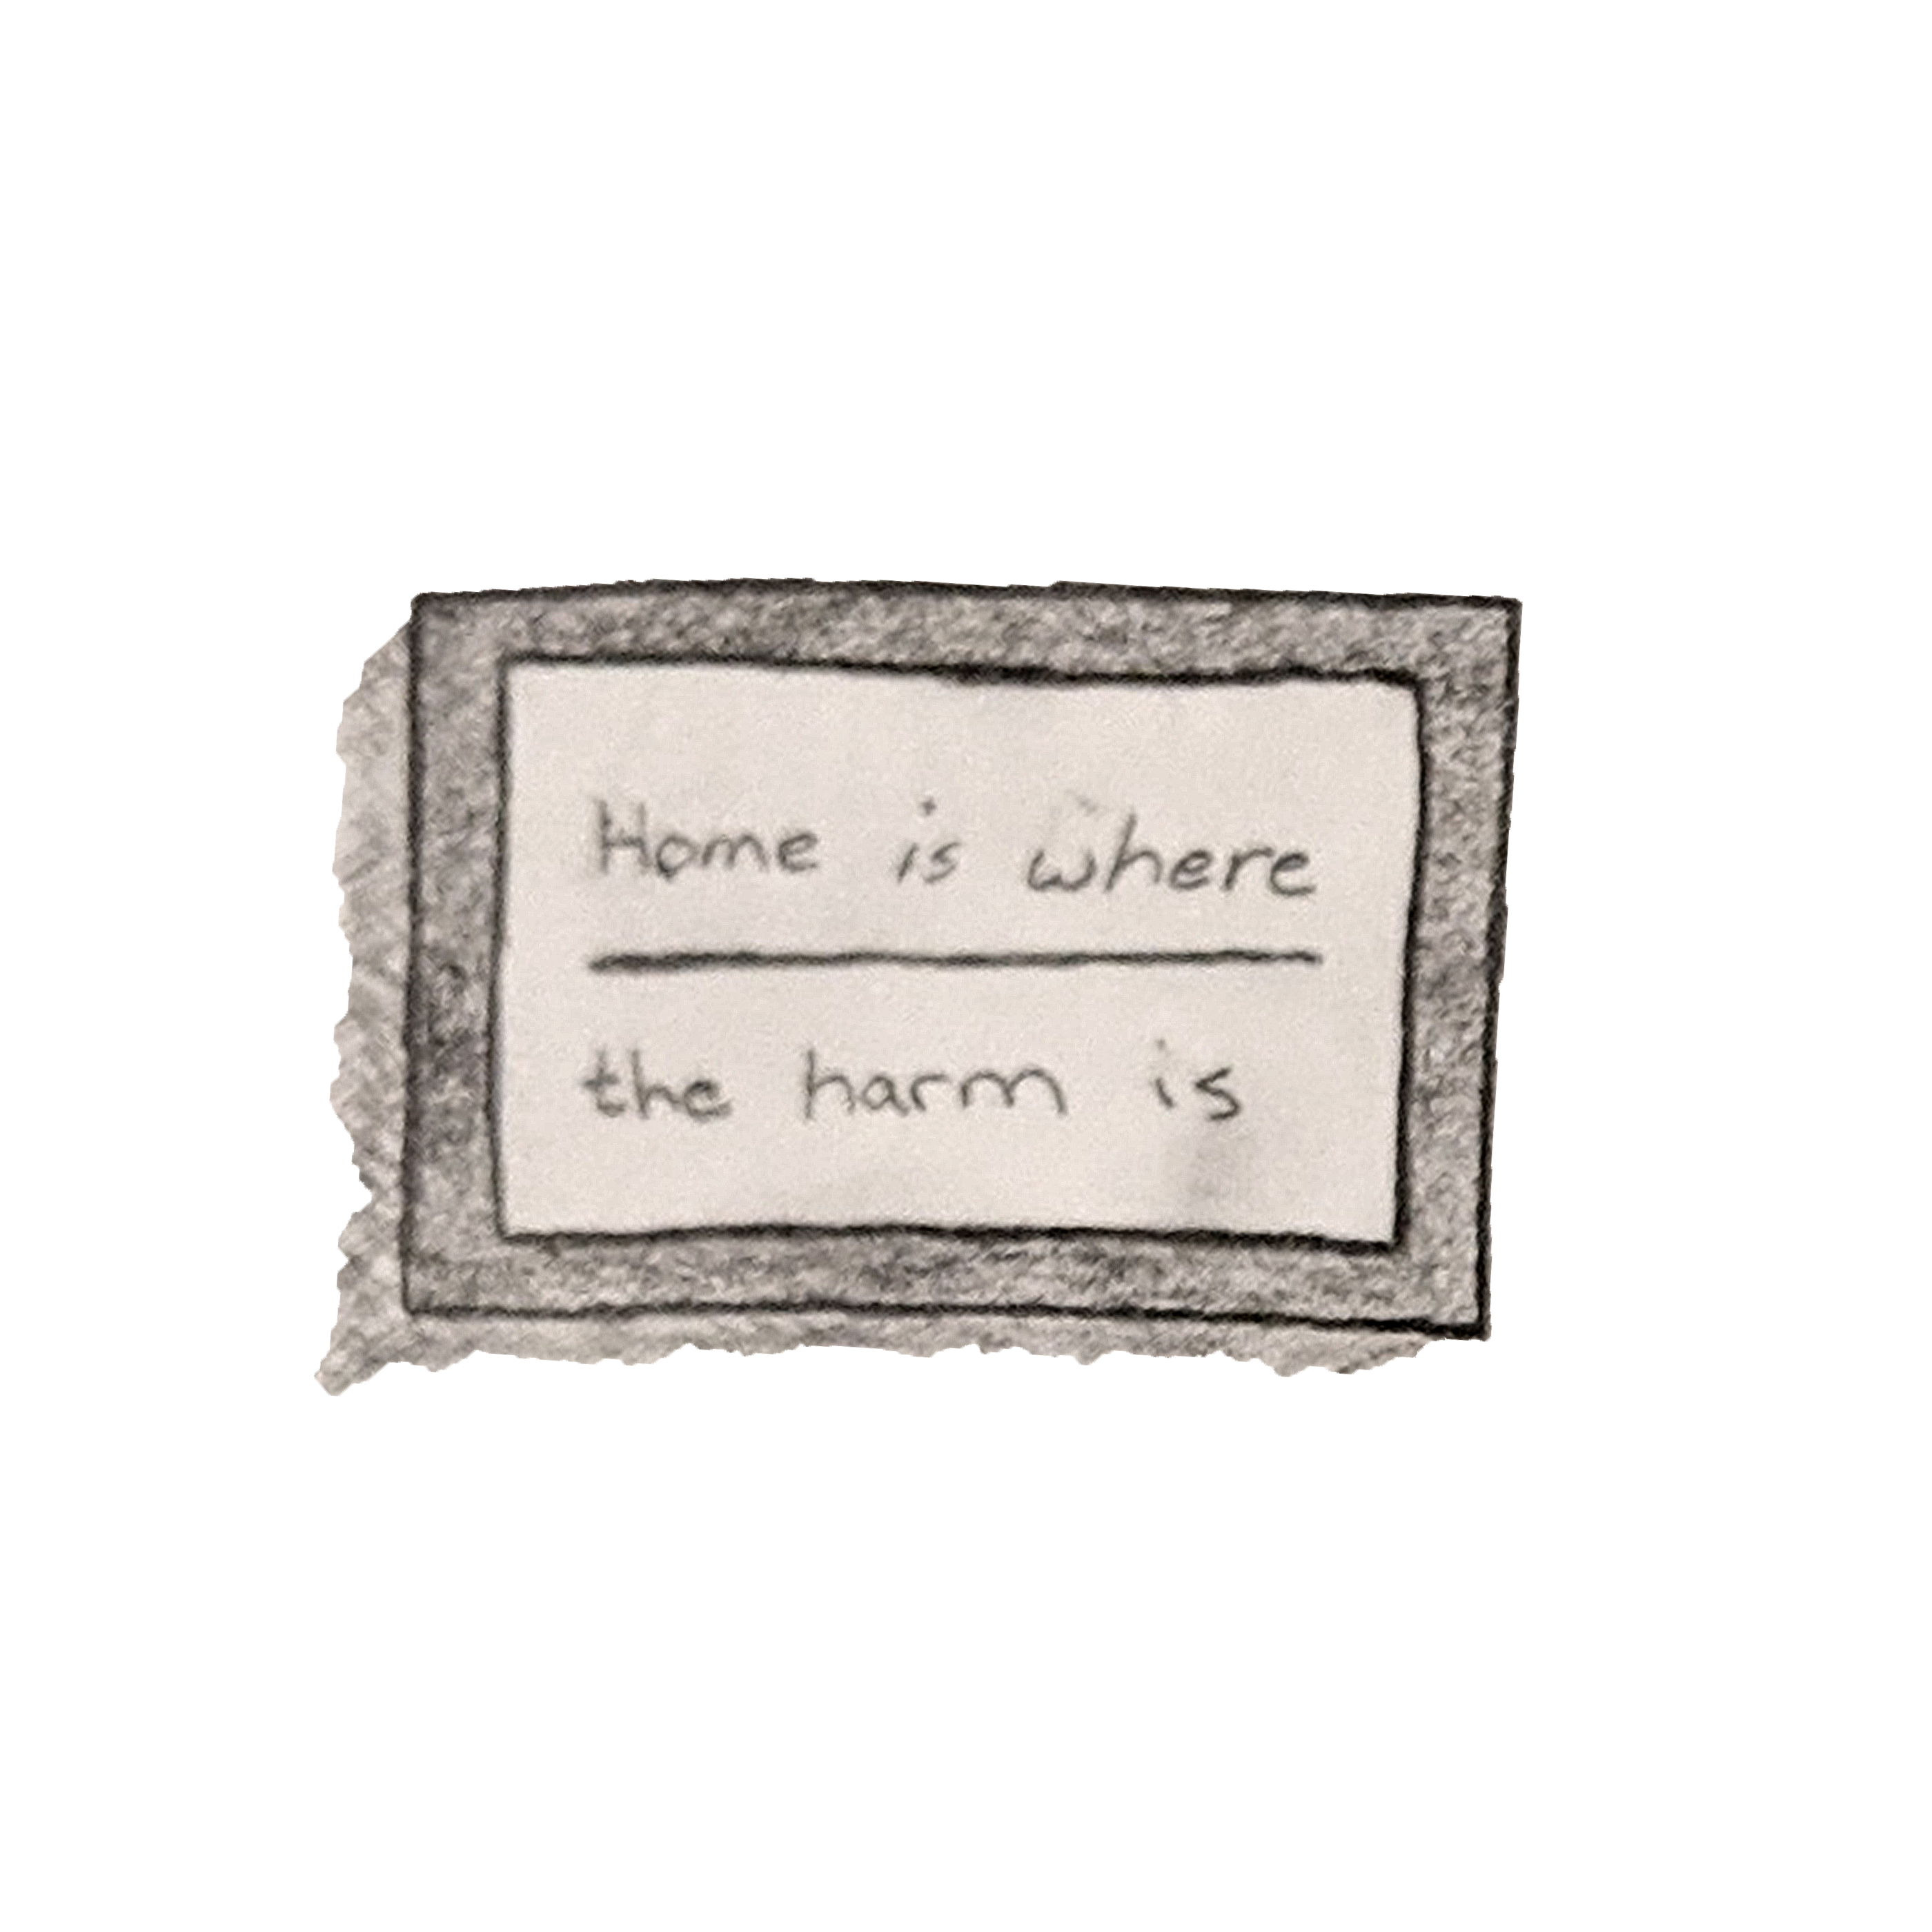 Home is where
the harm is